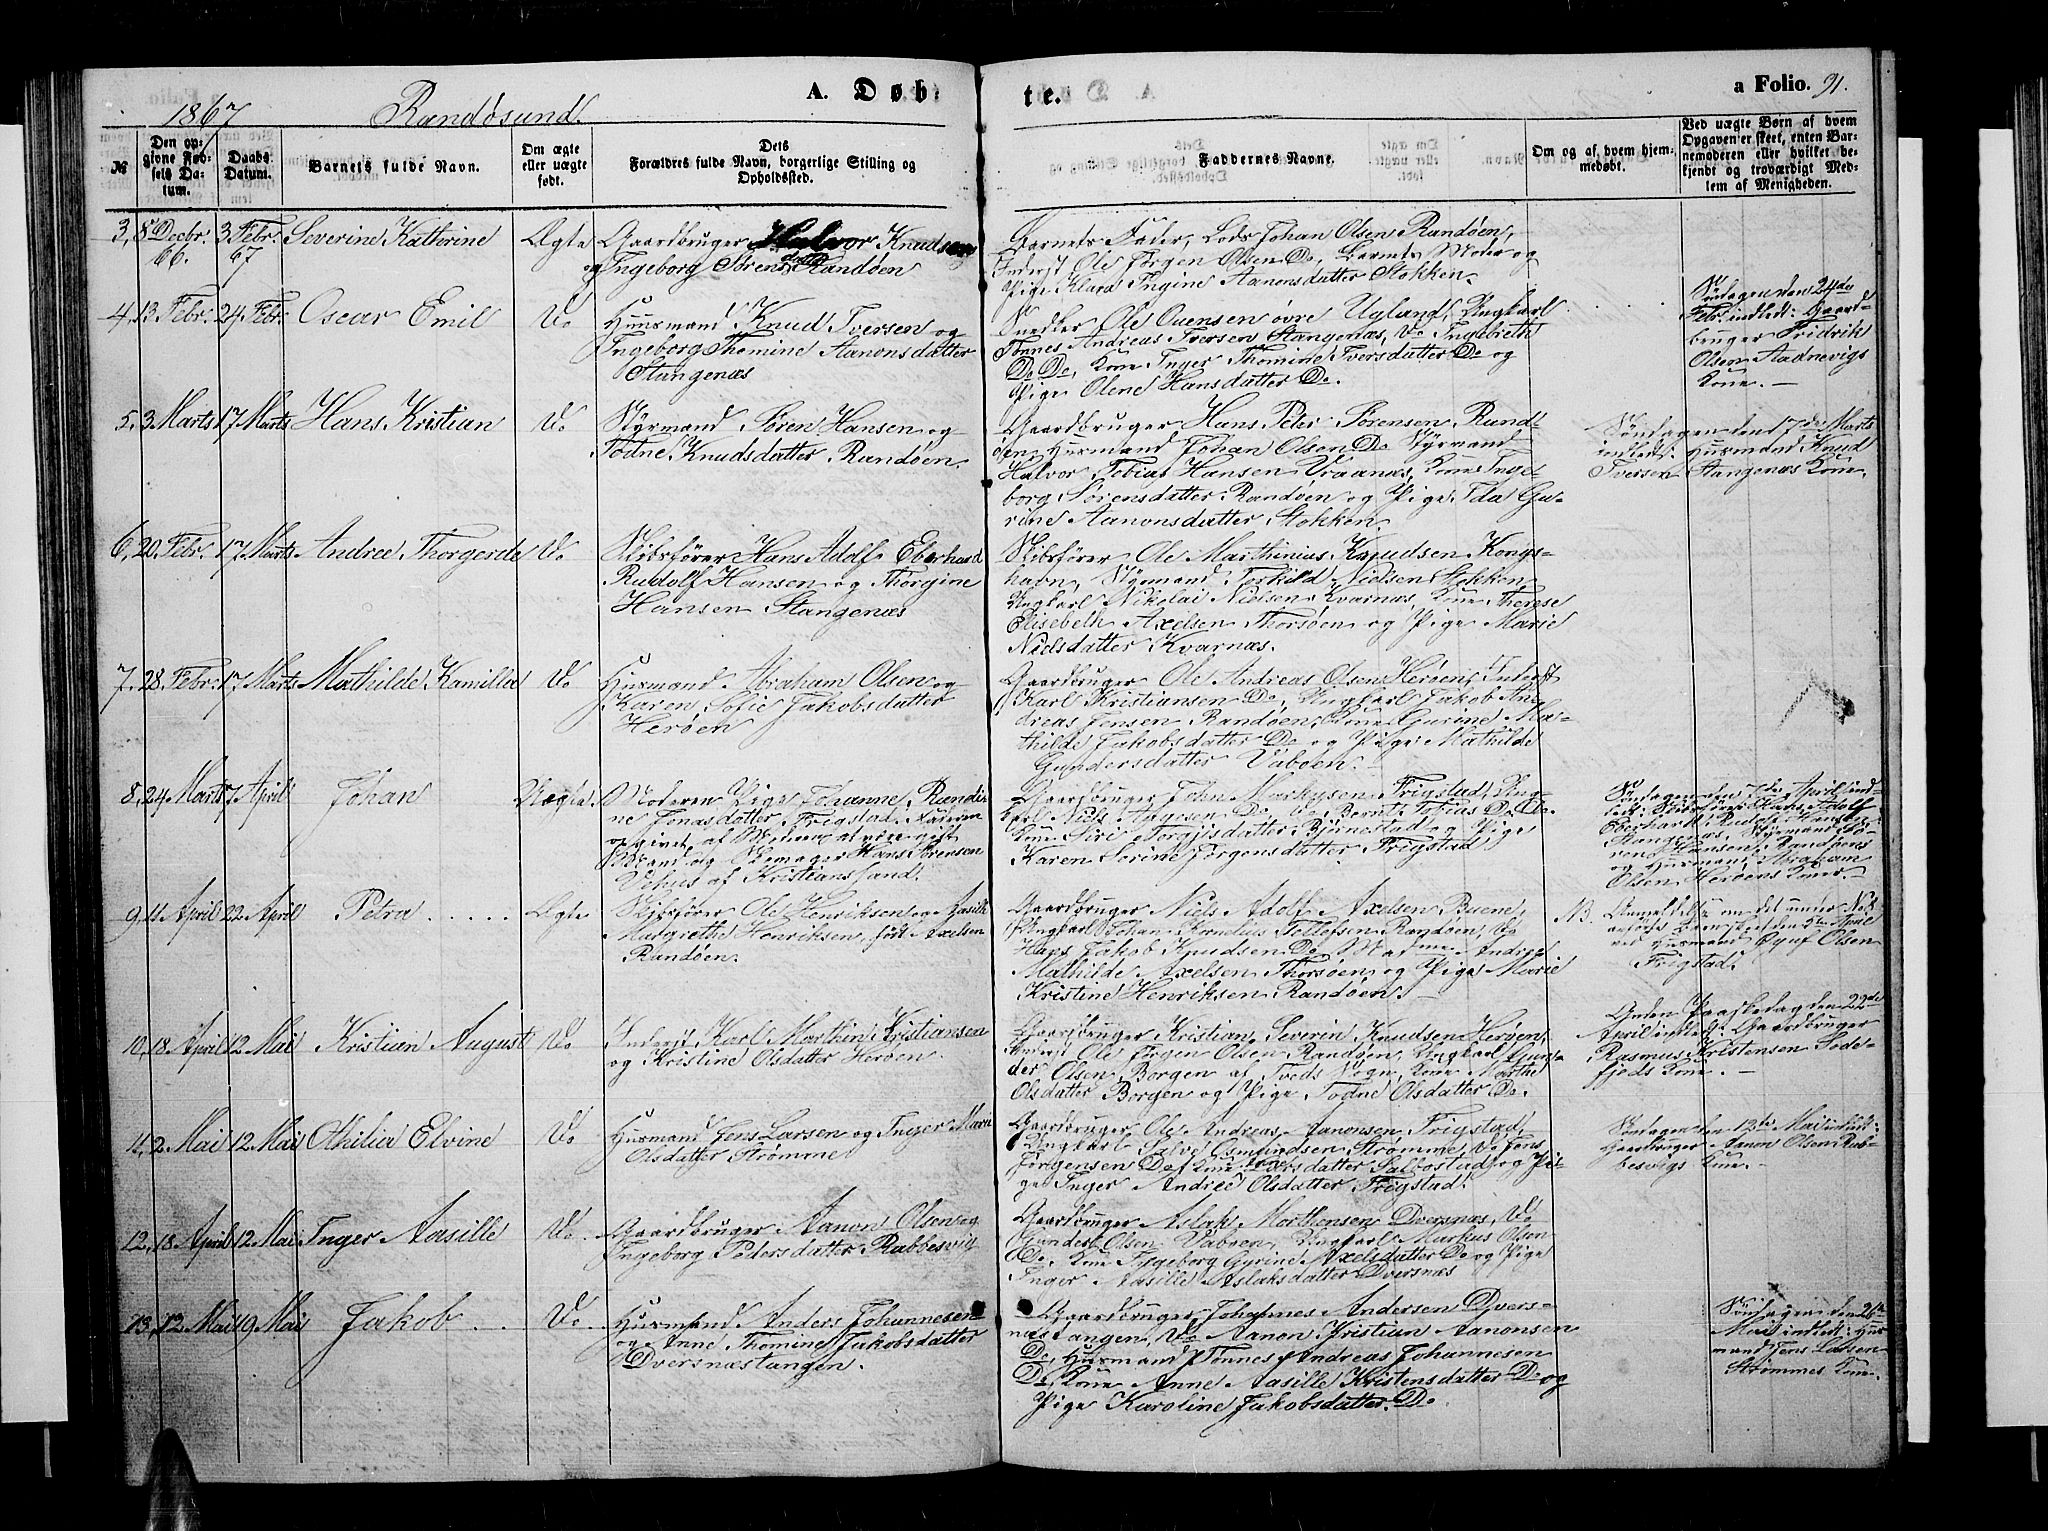 1867 Randøsund.
A. Døb:
te.
a Folio. 91.
№
Den op-
givne Fød-
sels Da-
tum.
Daabs
Datum.
Barnets fulde Navn.
Om ægte
eller uægte
født.
Dets
Forældres fulde Navn, borgerlige Stilling og
Opholdssted.
Faddernes Navne.
Om og af, hvem hjem-
medøbt.
Ved uægte Børn af hvem
Opgaven er skeet, enten Bar-
nemoderen eller hvilket be-
kjendt og troværdigt Med-
lem af Menigheden.
3, 8de Decbr. 66. 3 Febr. 67 Severine Katherine Ægte
Gaardbruger Halvor Knudsen
og Ingeborg Sørensdatter Randøen
Barnets Fader, Lods Johan Olsen Randøen,
Inderst Ole Jørgen Olsen Do, Barnets Moder og
Pige Klara Ingine Aanonsdatter Stokken.
4, 13 Febr. 24 Febr. Oscar Emil Do
Huusmand Knud Iversen og
Ingeborg Thomine Aanonsdatter
Stangenæs
Snedker Ole Ouensen øvre Ugland, Ungkarl
Tønnes Andreas Iversen Stangenæs, Do Ingebreth
Do Do, Kone Inger Thomine Iversdatter Do og
Pige Olene Hansdatter Do.
Søndagen den 24de
Febr. indledt: Gaard-
bruger Fridrik
Olsen Aadnevigs
Kone. —
5, 3 Marts 17 Marts Hans Kristian Do
Styrmand Søren Hansen og
Todne Knudsdatter Randøen.
Gaardbruger Hans Peter Sørensen Rand-
øen, Husmand Johan Olsen Do Styrmand
Halvor Tobias Hansen Vraanæs, Kone Inge-
borg Sørensdatter Randøen og Pige Ida Gu-
rine Aanonsdatter Stokken.
Søndagen den 17de Marts
indledt: Husmand Knud
Iversen Stangenæs Kone.
6, 20 Febr. 17 Marts Andrea Thorgerde Do
Skibsfører Hans Adolf Eberhard
Rudolf Hansen og Thorgine
Hansen Stangenæs
Skibsfører Ole Marthinius Knudsen Kongs-
havn, Styrmand Terkild Nielsen Stokken,
Ungkarl Nikolai Nielsen Kvarnæs, Kone Therese
Elisebeth Axelsen Thorsøen og Pige Marie
Nielsdatter Kvarnæs.
7, 28 Febr. 17 Marts Mathilde Kamilla Do
Husmand Abraham Olsen og
Karen Sofie Jakobsdatter
Herøen
Gaardbruger Ole Andreas Olsen Herøen, Inderst
Karl Kristiansen Do, Ungkarl Jakob An-
dreas Jensen Randøen, Kone Gurine Ma-
thilde Jakobsdatter Do og Pige Mathilde
Gundersdatter Vaböen. —
8, 24 Marts 7 April Johan Uægte.
Moderen Pige Johanne Randi-
ne Jonasdatter Frigstad. Faderen
opgivet af Moderen at være gift
Mand og Hans Sørensen
Vehus af Kristianssand.
Gaardbruger John Markusen Frigstad, Ung-
karl Niels Aagesen Do, Do Bernt Tobias Do Do.
Kone Siri Torgjisdatter Bjørnestad og Pige
Karen Serine Jørgensdatter Frigstad.
Søndagen den 7de April ind-
ledt: Skibsfører Hans Adolf
Eberhardt Rudolf Hansen
Stangenæs, Styrmand Sø-
ren Hansen Randøens
og Husmand Abraham
Olsen Herøens Koner.
9, 11 April 22 April Petra Ægte
Skibsfører Ole Henriksen og Aasille
Margrethe Henriksen, født Axelsen
Randøen.
Gaardbruger Niels Adolf Axelsen Buene,
Ungkarl Johan Kornelius Tollefsen Randøen, Do
Hans Jakob Knudsen Do Madme Andrea
Mathilde Axelsen Thorsøen og Pige Marie
Kristine Henriksen Randøen. —
NB. Anmeldelse om det under No 8
anførte Barn skeet den 5te April
ved Husmand Olsen
Frigstad.
10, 18 April 12 Mai Kristian August Do
Inderst Karl Marthin Kristiansen
og Kristine Olsdatter Herøen.
Gaardbruger Kristian Severin Knudsen Herøen,
Inderst Ole Jørgen Olsen Randøen, Ungkarl Gun-
der Olsen Borgen af Tveds Sogn, Kone Marthe
Olsdatter Borgen og Pige Todne Olsdatter Do.
Anden Paaskedag den 22de
April indledt: Gaardbruger
Rasmus Kristensen Sode-
fjeds Kone. —
11, 2 Mai 12 Mai Othilia Elvine Do
Husmand Jens Larsen og Inger Marie
Olsdatter Strømme
Gaardbruger Ole Andreas Aanonsen Frigstad,
Ungkarl Salve Osmundsen Strømme, Do Jens
Jørgensen Do, Kone Larsdatter Salbostad og Pi-
ge Inger Andrea Olsdatter Frigstad.
Søndagen den 12te Mai indledt:
Gaardbruger Aanon Olsen Rab-
besvigs Kone. —
12, 18 April 12 Mai Inger Aasille Do.
Gaardbruger Aanon Olsen og
Ingeborg Pedersdatter Rabbesvig
Gaardbruger Aslak Morthensen Dversnæs, Do
Gunder Olsen Vaböen, Ungkarl Markus Olsen
Do, Kone Ingeborg Gyrine Axelsdatter Do og Pige
Inger Aasille Aslaksdatter Dversnæs
13, 12 Mai 19 Mai Jakob Do.
Husmand Anders Johannesen
og Anne Thomine Jakobsdatter
Dversnæstangen.
Gaardbruger Johannes Andersen Dvers-
næstangen, Do Aanon Kristian Aanonsen
Do, Husmand Tønnes Andreas Johannesen
Do, Kone Anne Aasille Kristensdatter Do og
Pige Karoline Jakobsdatter Do.
Søndagen den 26de
Mai indledt: Hus-
mand Jens Larsen
Strømmes Kone.